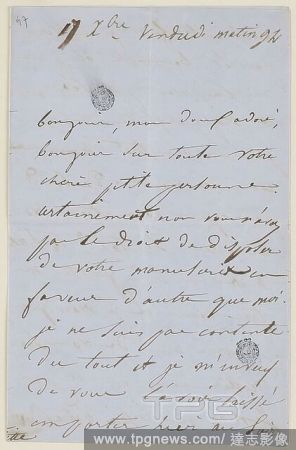 17 Xbre vendredi matin 9h
bonjour, mon doux adoré,
bonjour sur toute votre
chère petite personne.
certainement non vous n'avez
pas le droit de disposer
de votre manuscrit en
faveur d'autre que moi.
je ne suis pas contente
du tout et je
de vous
emporter hier au soir
TPG
www.tpgnews.com / 達志影像